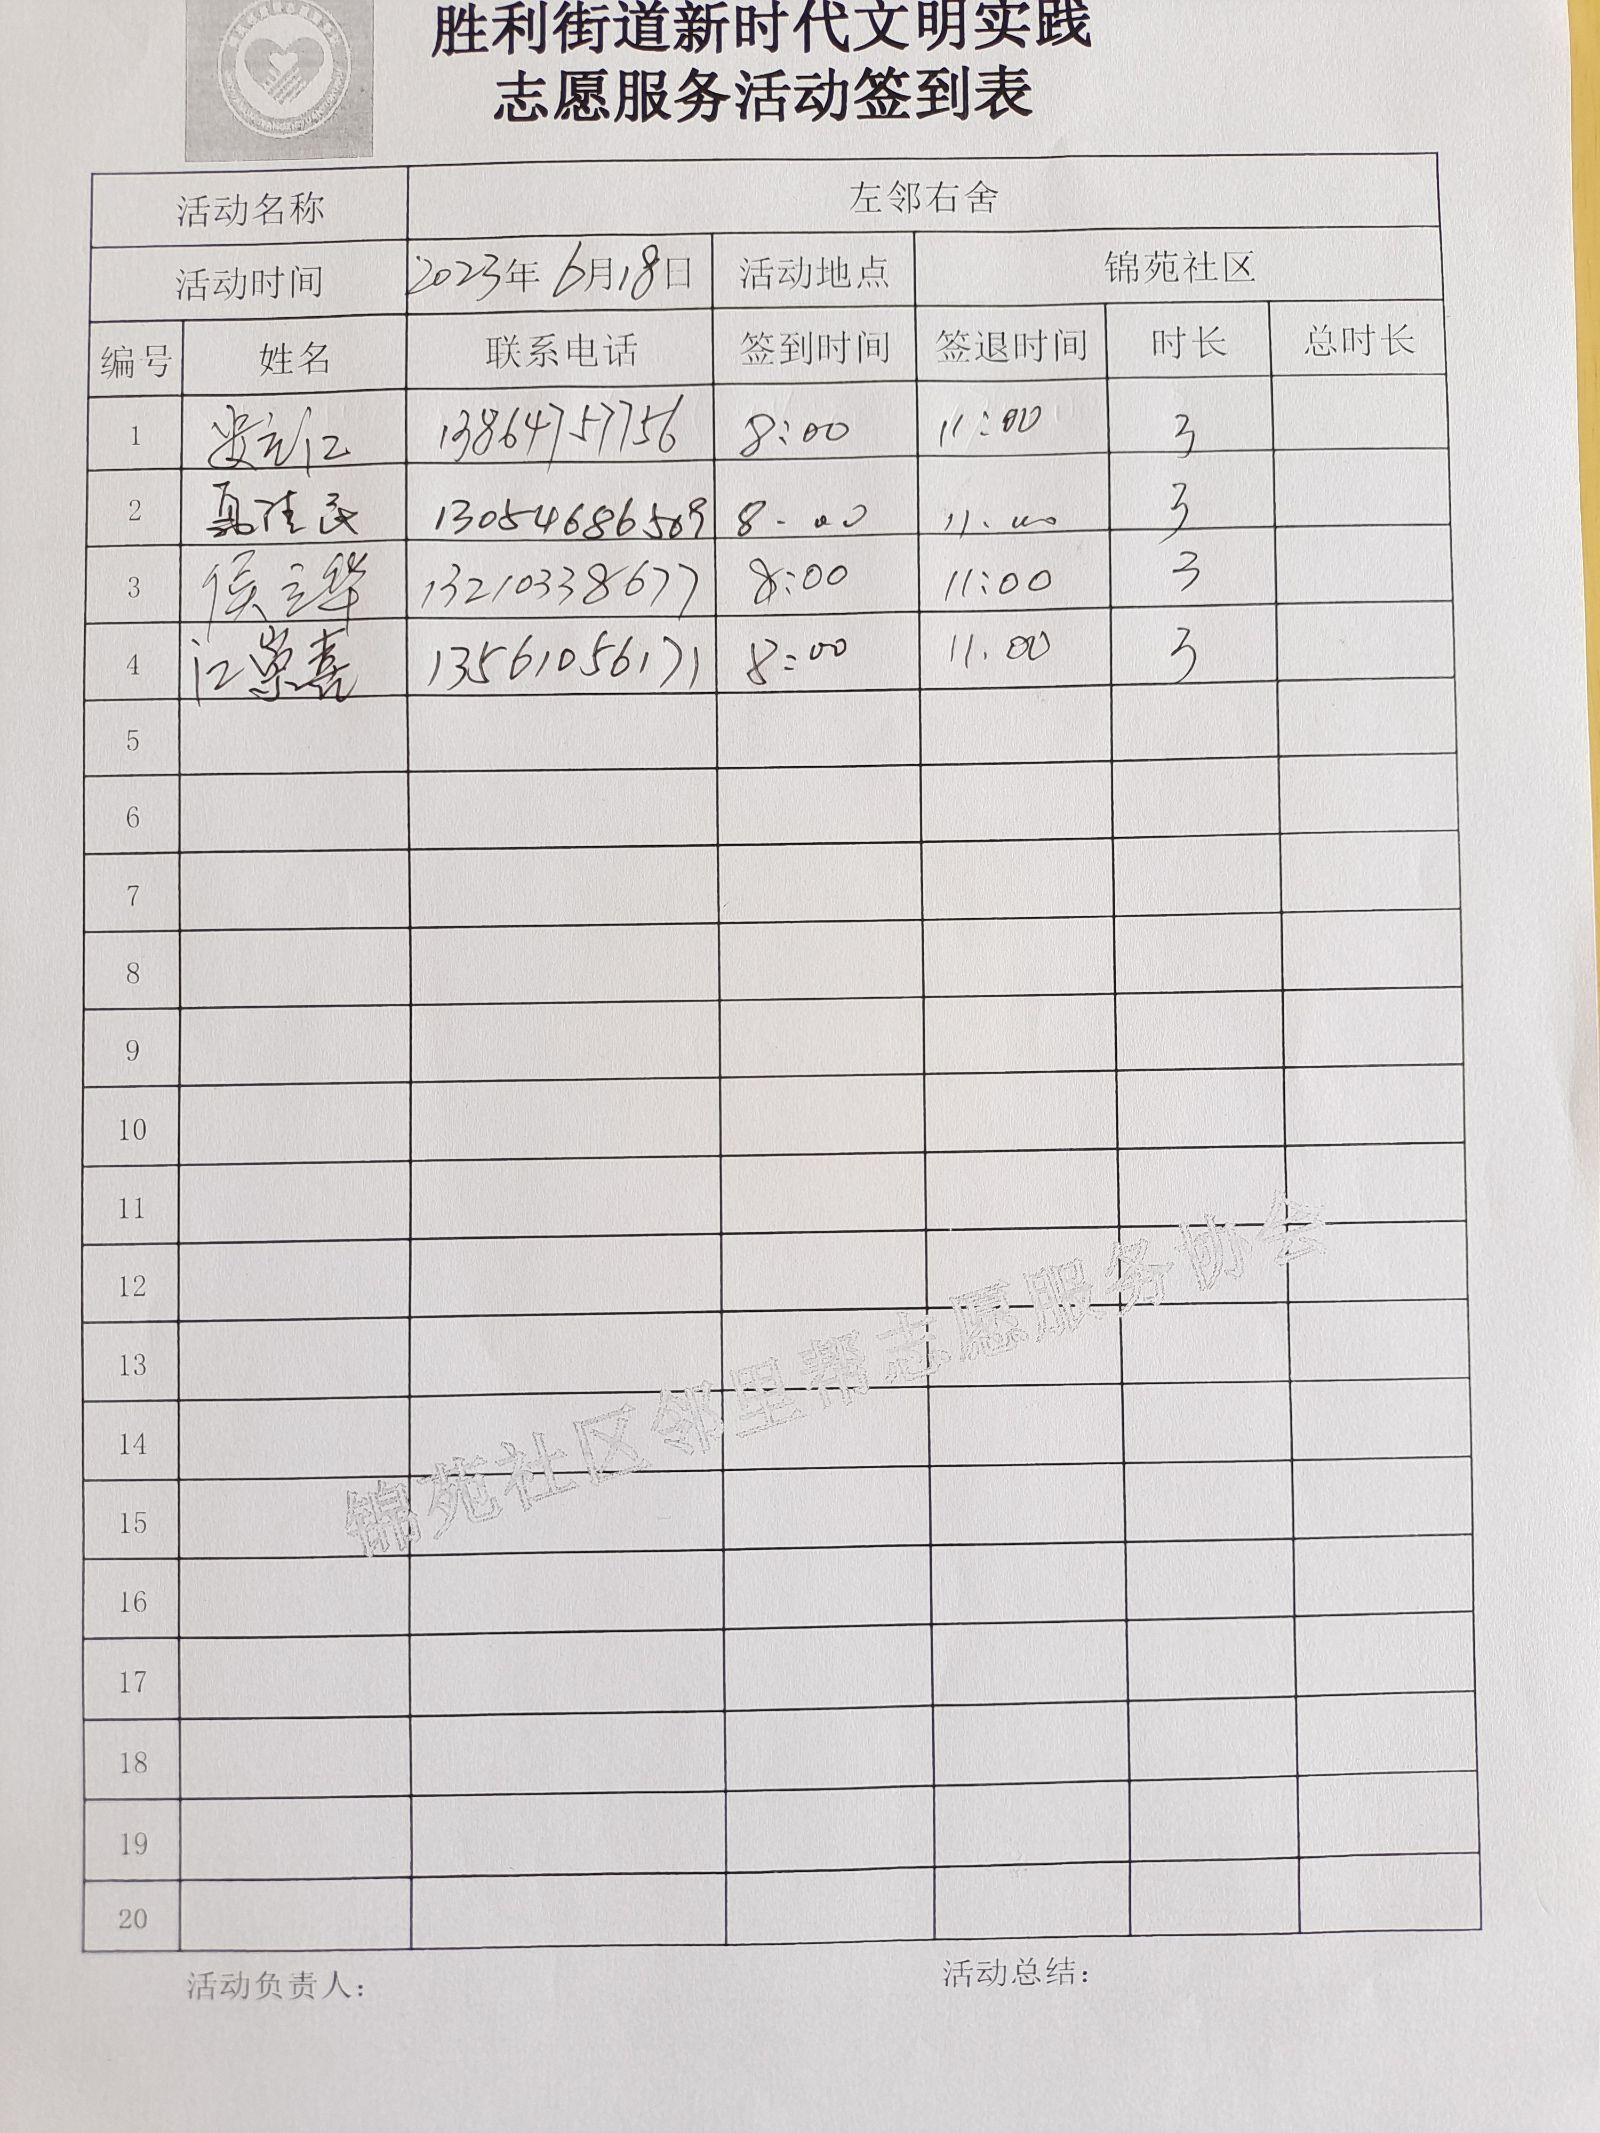 胜利街道新时代文明实践
志愿服务活动签到表
活动名称 左邻右舍
活动时间 2023年6月18日 活动地点 锦苑社区
编号 姓名 联系电话 签到时间 签退时间 时长 总时长
1 13864757756 8:00 11:00 3
2 13054686509 8:00 11:00 3
3 侯立华 13210338677 8:00 11:00 3
4 江崇喜 13561056171 8:00 11:00 3
5
6
7
8
9
10
11
12
13
14
15
16
17
18
19
20
锦苑社区邻里帮志愿服务协会
活动负责人： 活动总结：